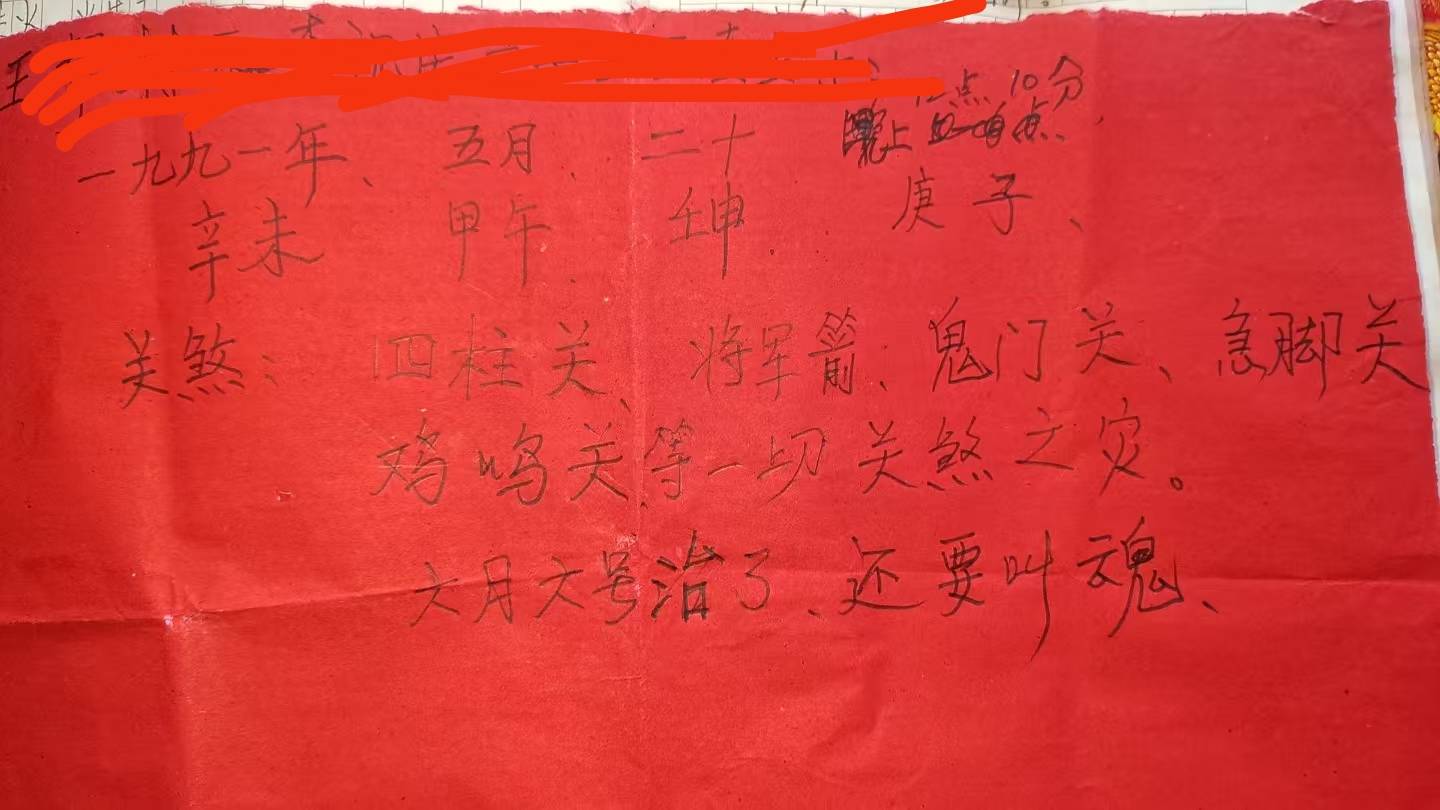 点10分
一九九一年、五月、二十 晚上
辛未 甲午、 壬申. 庚子、
关煞: 四柱关、将军箭、鬼门关、急脚关
鸡鸣关等一切关煞之灾。
六月六号治了、还要叫魂、